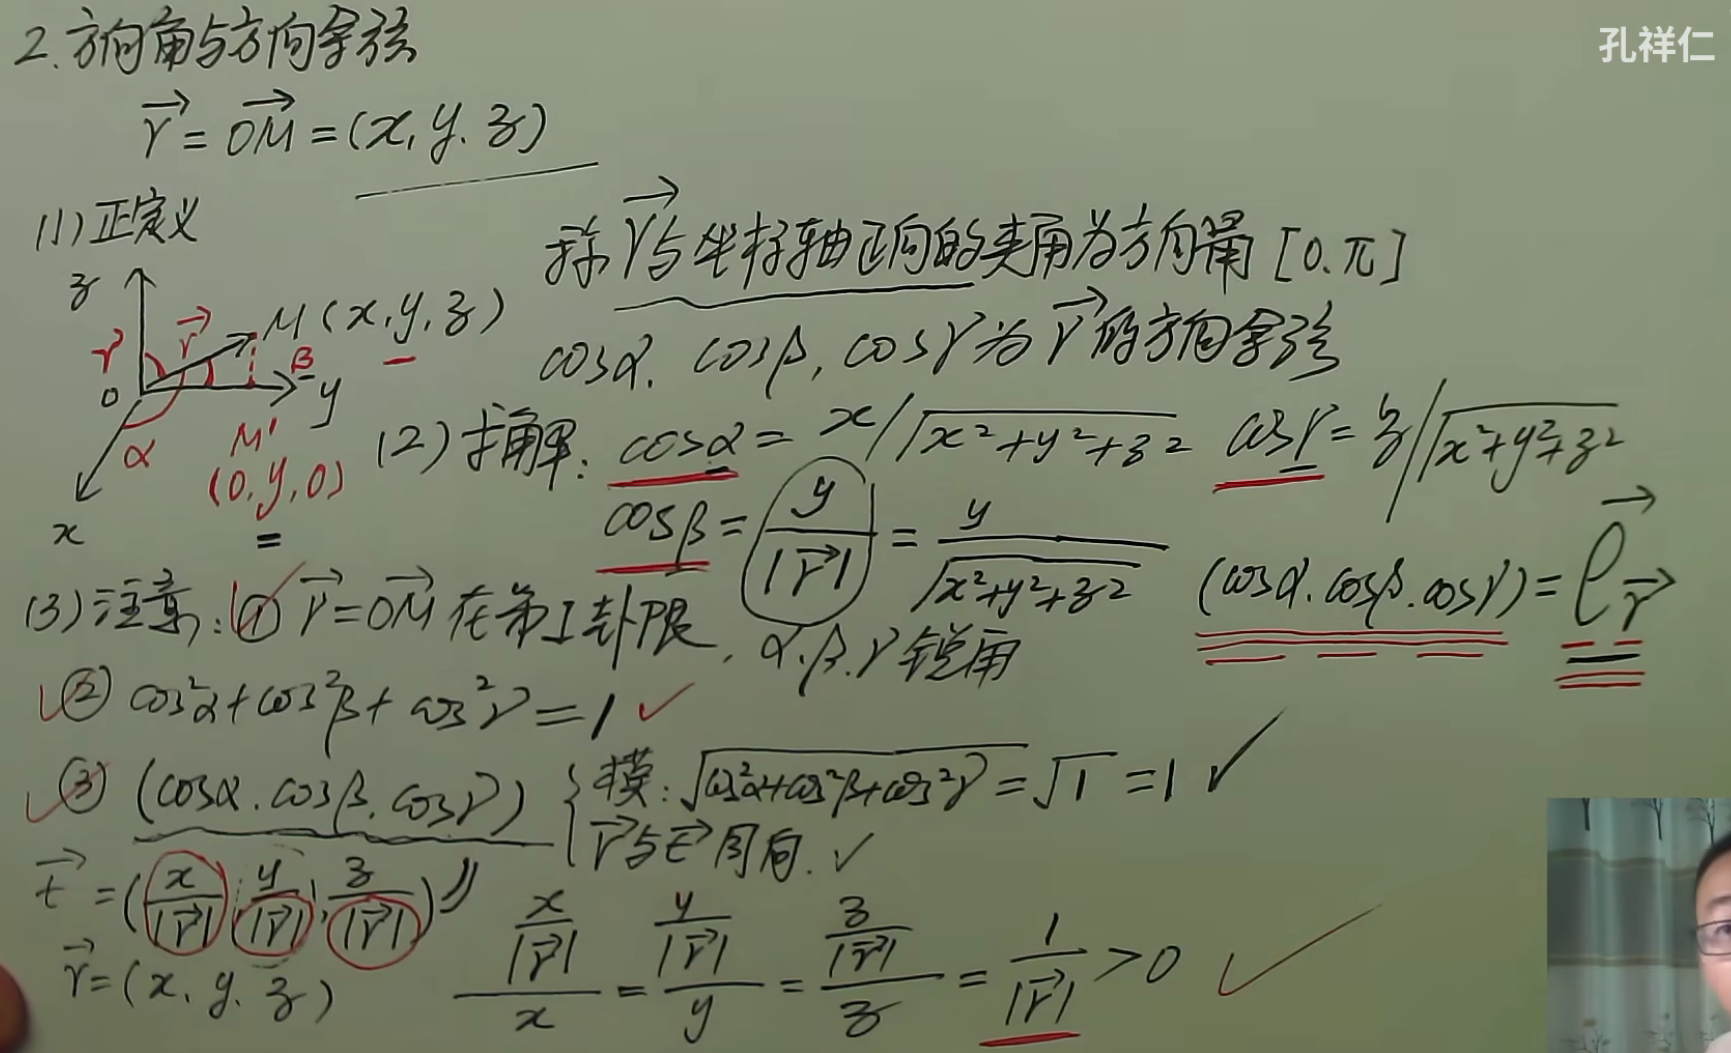 孔祥仁
2. 方向角与方向余弦
r⃗ = OM⃗ = (x, y, z)
(1) 定义
称 r⃗ 与坐标轴正向的夹角为方向角 [0, π]
cosα, cosβ, cosγ 为 r⃗ 的方向余弦
z
γ r⃗ M (x, y, z)
β
O y
α M'
(0, y, 0)
x
(2) 求解: cosα = x/√(x²+y²+z²) cosγ = z/√(x²+y²+z²)
cosβ = y/|r⃗| = y/√(x²+y²+z²)
(cosα, cosβ, cosγ) = e⃗_r⃗
(3) 注意: ① r⃗ = OM⃗ 在第I卦限, α, β, γ 锐角
② cos²α + cos²β + cos²γ = 1
③ (cosα, cosβ, cosγ) { 模: √(cos²α+cos²β+cos²γ) = √1 = 1 ✓
r⃗ 与 t⃗ 同向. ✓
t⃗ = (x/|r⃗|, y/|r⃗|, z/|r⃗|)
r⃗ = (x, y, z)
(x/|r⃗|)/x = (y/|r⃗|)/y = (z/|r⃗|)/z = 1/|r⃗| > 0